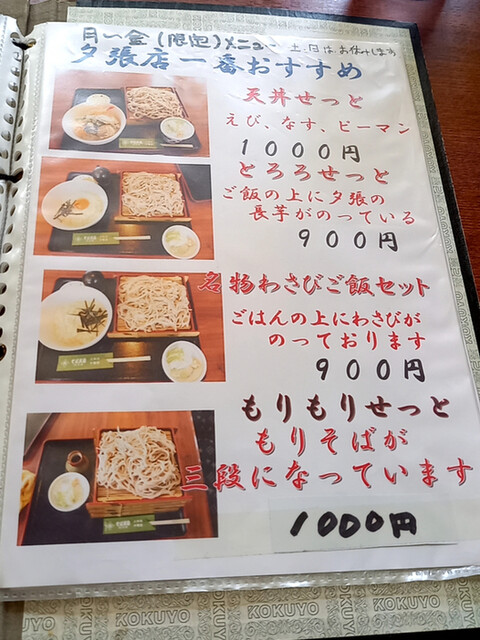 月〜金(限定)メニュー 土、日はお休みします
夕張店一番おすすめ
天丼せっと
えび、なす、ピーマン
1000円
とろろせっと
ご飯の上に夕張の
長芋がのっている
900円
名物わさびご飯セット
ごはんの上にわさびが
のっております
900円
もりもりせっと
もりそばが
三段になっています
1000円
KOKUYO